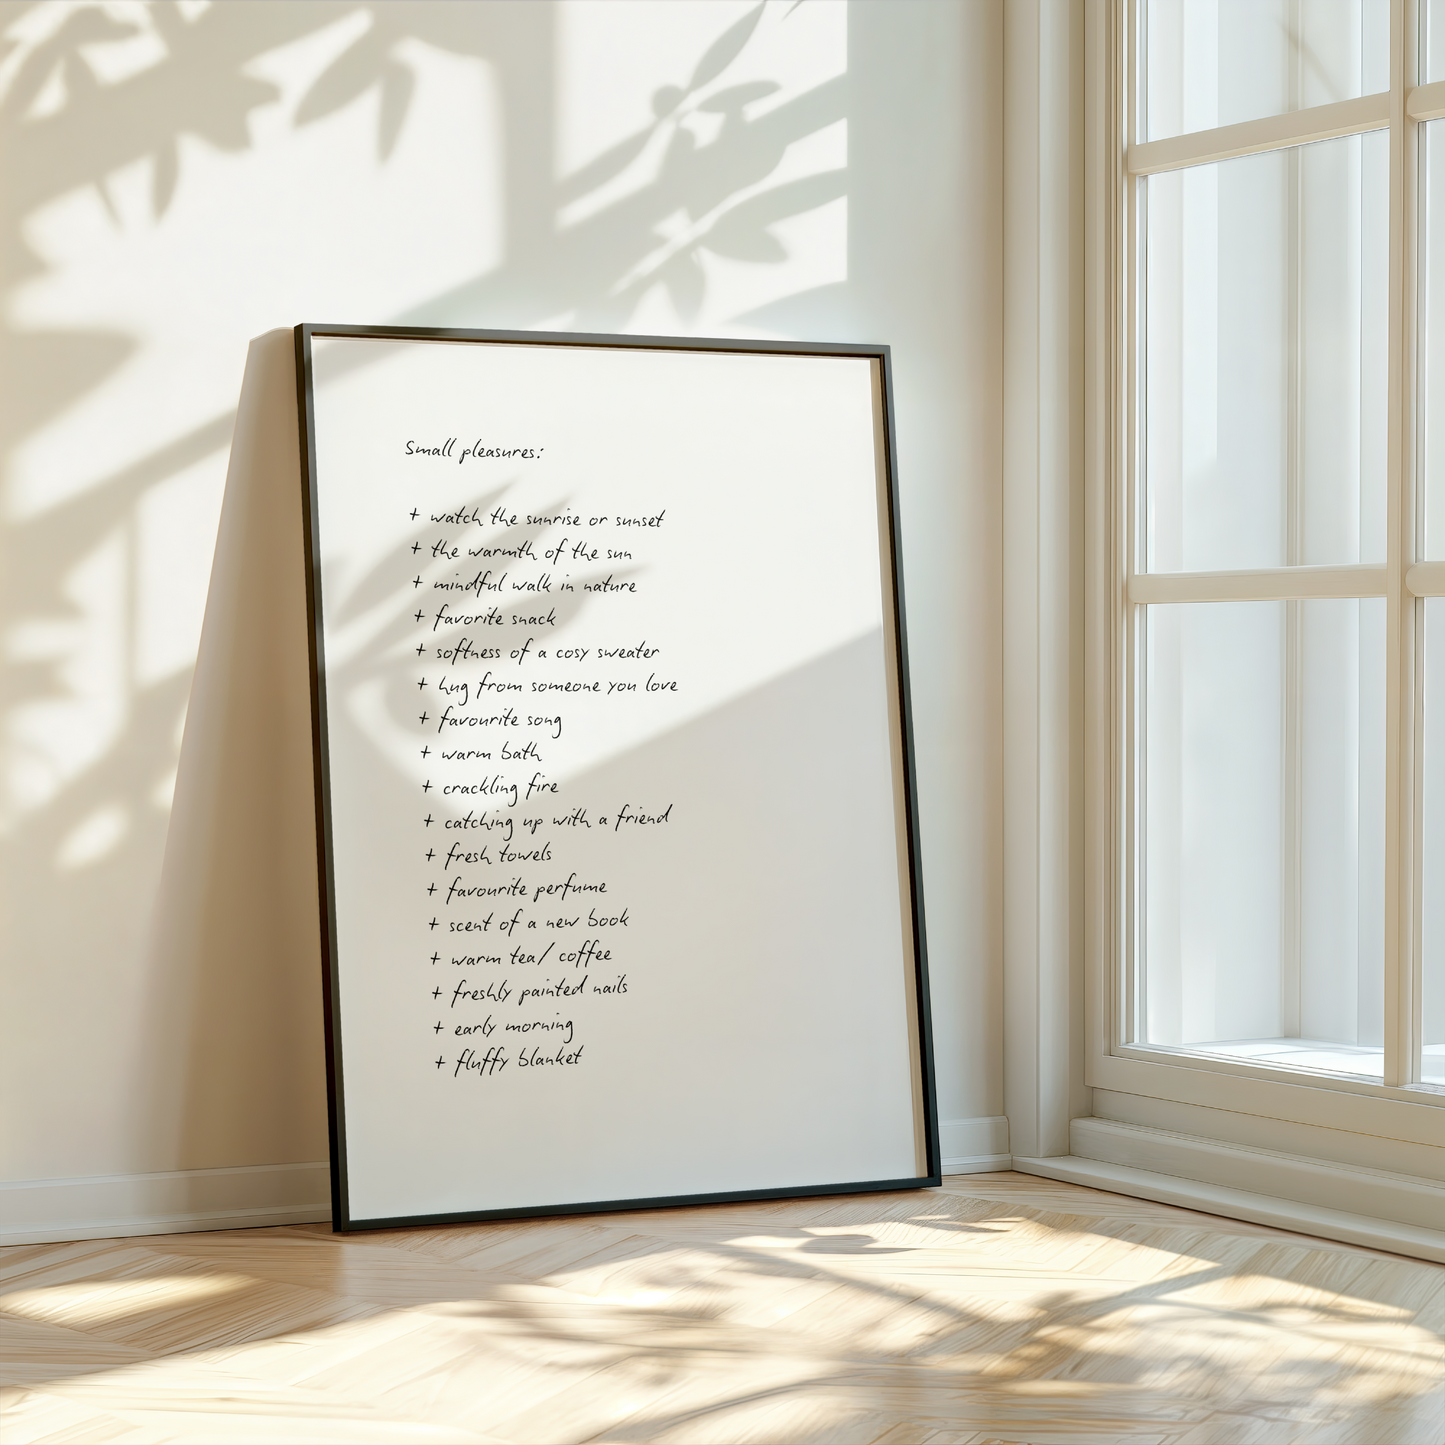 Small pleasures:
+ watch the sunrise or sunset
+ the warmth of the sun
+ mindful walk in nature
+ favorite snack
+ softness of a cosy sweater
+ hug from someone you love
+ favourite song
+ warm bath
+ crackling fire
+ catching up with a friend
+ fresh towels
+ favourite perfume
+ scent of a new book
+ warm tea/ coffee
+ freshly painted nails
+ early morning
+ fluffy blanket